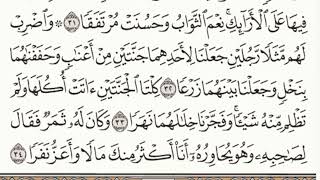 فِيهَا عَلَى ٱلْأَرَآئِكِ ۚ نِعْمَ ٱلثَّوَابُ وَحَسُنَتْ مُرْتَفَقًا ٣١ ۞ وَٱضْرِبْ
لَهُم مَّثَلًا رَّجُلَيْنِ جَعَلْنَا لِأَحَدِهِمَا جَنَّتَيْنِ مِنْ أَعْنَٰبٍ وَحَفَفْنَٰهُمَا
بِنَخْلٍ وَجَعَلْنَا بَيْنَهُمَا زَرْعًا ٣٢ كِلْتَا ٱلْجَنَّتَيْنِ ءَاتَتْ أُكُلَهَا وَلَمْ
تَظْلِم مِّنْهُ شَيْـًٔا ۚ وَفَجَّرْنَا خِلَٰلَهُمَا نَهَرًا ٣٣ وَكَانَ لَهُۥ ثَمَرٌ فَقَالَ
لِصَٰحِبِهِۦ وَهُوَ يُحَاوِرُهُۥٓ أَنَا۠ أَكْثَرُ مِنكَ مَالًا وَأَعَزُّ نَفَرًا ٣٤